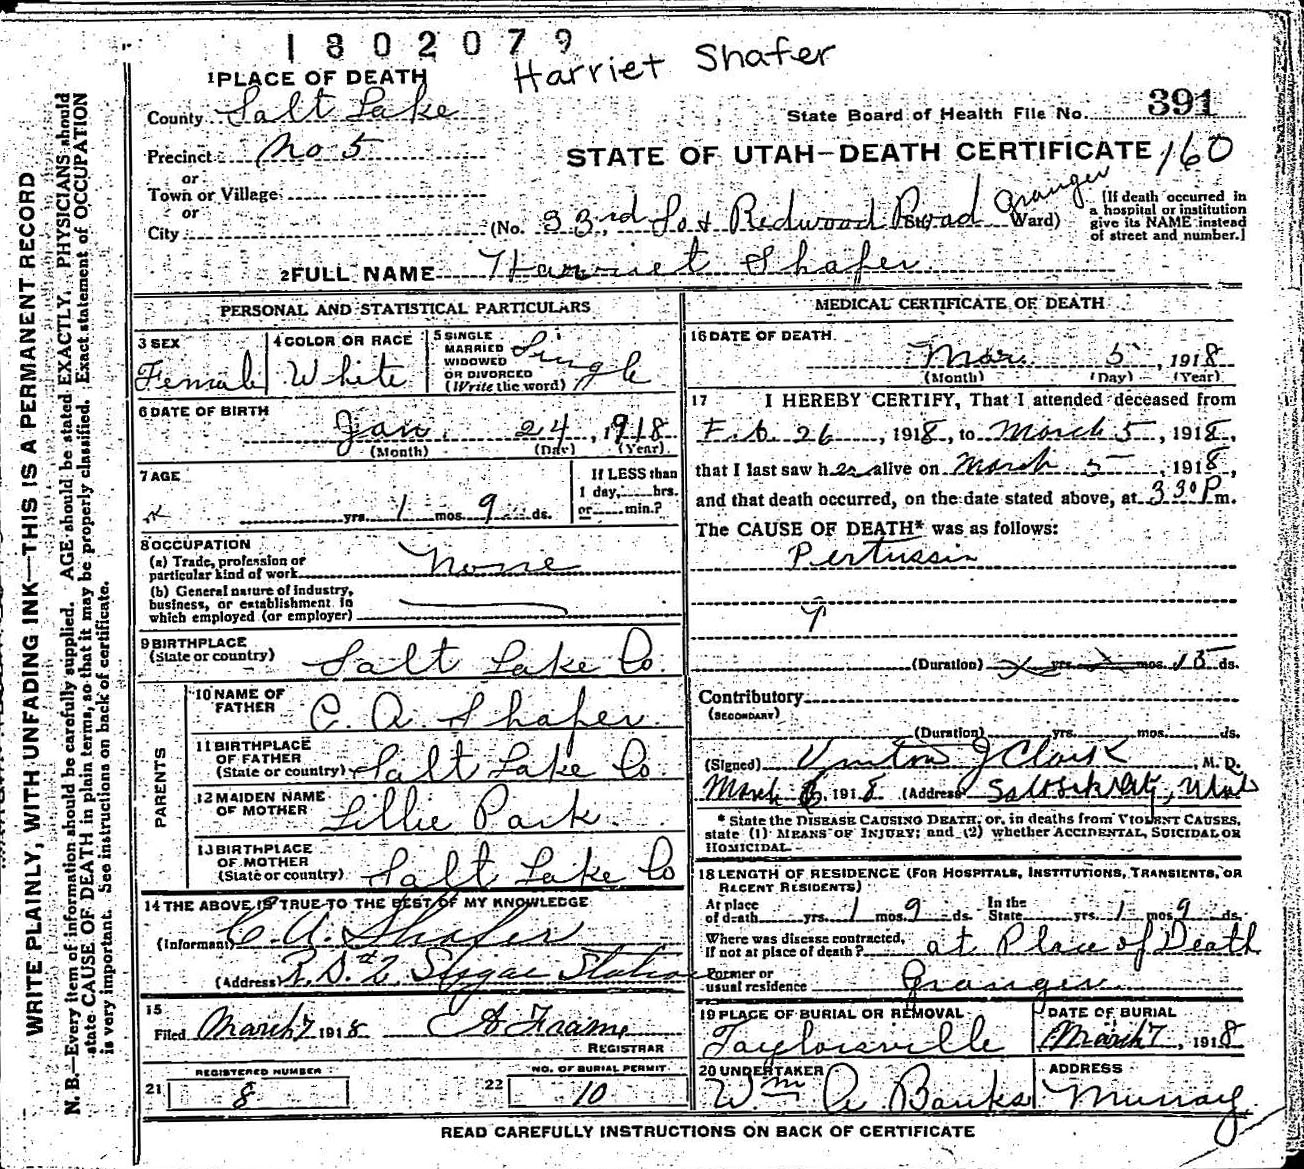 1802079
Harriet Shafer
1 PLACE OF DEATH
County Salt Lake
State Board of Health File No. 391
Precinct No 5
STATE OF UTAH—DEATH CERTIFICATE 160
or
Town or Village
or
City (No. 33rd So & Redwood Road St; Granger Ward)
[If death occurred in a hospital or institution give its NAME instead of street and number.]
2 FULL NAME Harriet Shafer
PERSONAL AND STATISTICAL PARTICULARS
3 SEX
Female
4 COLOR OR RACE
White
5 SINGLE
MARRIED
WIDOWED
OR DIVORCED
(Write the word)
Single
6 DATE OF BIRTH
Jan. 24, 1918
(Month) (Day) (Year)
7 AGE
yrs. 1 mos. 9 ds.
If LESS than
1 day, hrs.
or min.?
8 OCCUPATION
(a) Trade, profession or
particular kind of work None
(b) General nature of industry,
business, or establishment in
which employed (or employer)
9 BIRTHPLACE
(State or country) Salt Lake Co.
PARENTS
10 NAME OF
FATHER C. A. Shafer
11 BIRTHPLACE
OF FATHER
(State or country) Salt Lake Co.
12 MAIDEN NAME
OF MOTHER Lillie Park
13 BIRTHPLACE
OF MOTHER
(State or country) Salt Lake Co
14 THE ABOVE IS TRUE TO THE BEST OF MY KNOWLEDGE
(Informant) C. A. Shafer
(Address) R.D. #2 Station
15
Filed March 7 1918
REGISTRAR
REGISTERED NUMBER
21 8
NO. OF BURIAL PERMIT
22 10
MEDICAL CERTIFICATE OF DEATH
16 DATE OF DEATH
Mar. 5, 1918
(Month) (Day) (Year)
17 I HEREBY CERTIFY, That I attended deceased from
Feb. 26, 1918, to March 5, 1918,
that I last saw her alive on March 5, 1918,
and that death occurred, on the date stated above, at 3 30 P m.
The CAUSE OF DEATH* was as follows:
Pertussis
(Duration) yrs. mos. 15 ds.
Contributory
(SECONDARY)
(Duration) yrs. mos. ds.
(Signed) J Clark, M. D.
March 6, 1918 (Address) Salt Lake City, Utah
* State the DISEASE CAUSING DEATH, or, in deaths from VIOLENT CAUSES,
state (1) MEANS OF INJURY; and (2) whether ACCIDENTAL, SUICIDAL OR
HOMICIDAL.
18 LENGTH OF RESIDENCE (FOR HOSPITALS, INSTITUTIONS, TRANSIENTS, OR
RECENT RESIDENTS)
At place
of death yrs. 1 mos. 9 ds. In the
State yrs. 1 mos. 9 ds.
Where was disease contracted,
If not at place of death? at Place of Death
Former or
usual residence Granger
19 PLACE OF BURIAL OR REMOVAL
Taylorsville
DATE OF BURIAL
March 7, 1918
20 UNDERTAKER
Wm A Banks
ADDRESS
Murray
READ CAREFULLY INSTRUCTIONS ON BACK OF CERTIFICATE
WRITE PLAINLY, WITH UNFADING INK—THIS IS A PERMANENT RECORD
N. B.—Every item of information should be carefully supplied. AGE should be stated EXACTLY. PHYSICIANS should
state CAUSE OF DEATH in plain terms, so that it may be properly classified. Exact statement of OCCUPATION
is very important. See instructions on back of certificate.